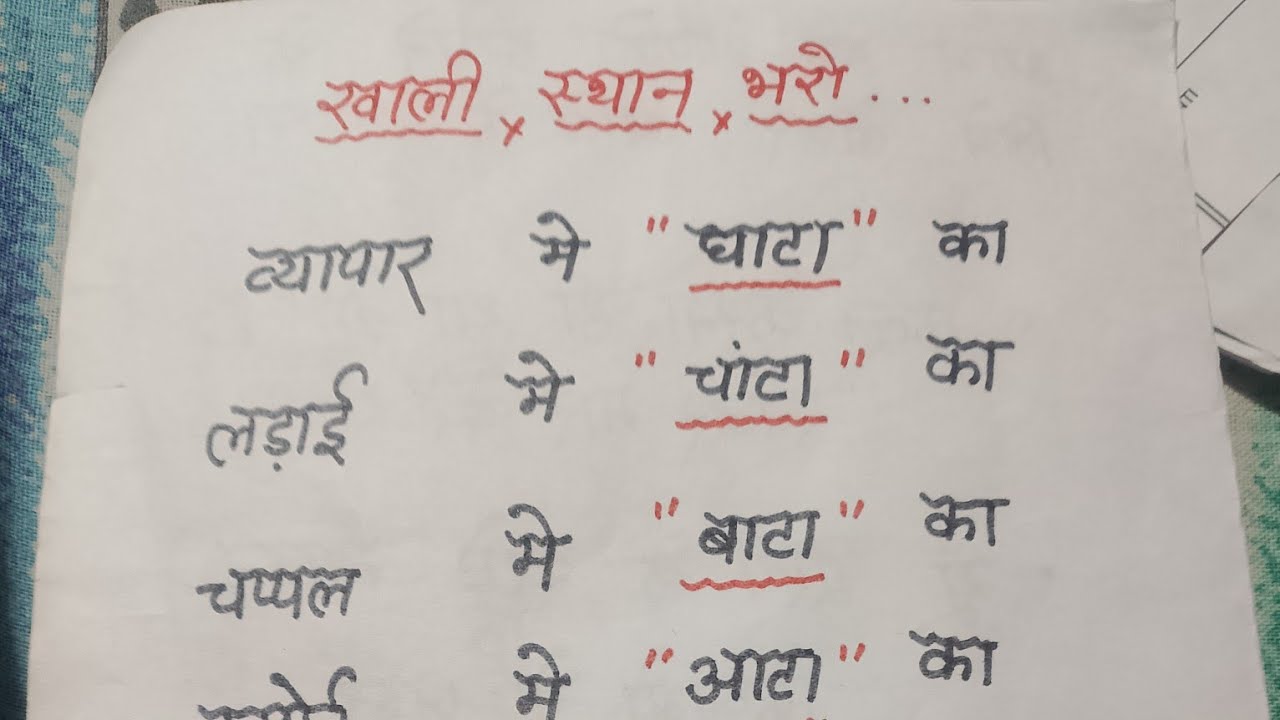 खाली × स्थान × भरो ...
व्यापार मे "घाटा" का
लड़ाई मे "चांटा" का
चप्पल मे "बाटा" का
मे "आटा" का